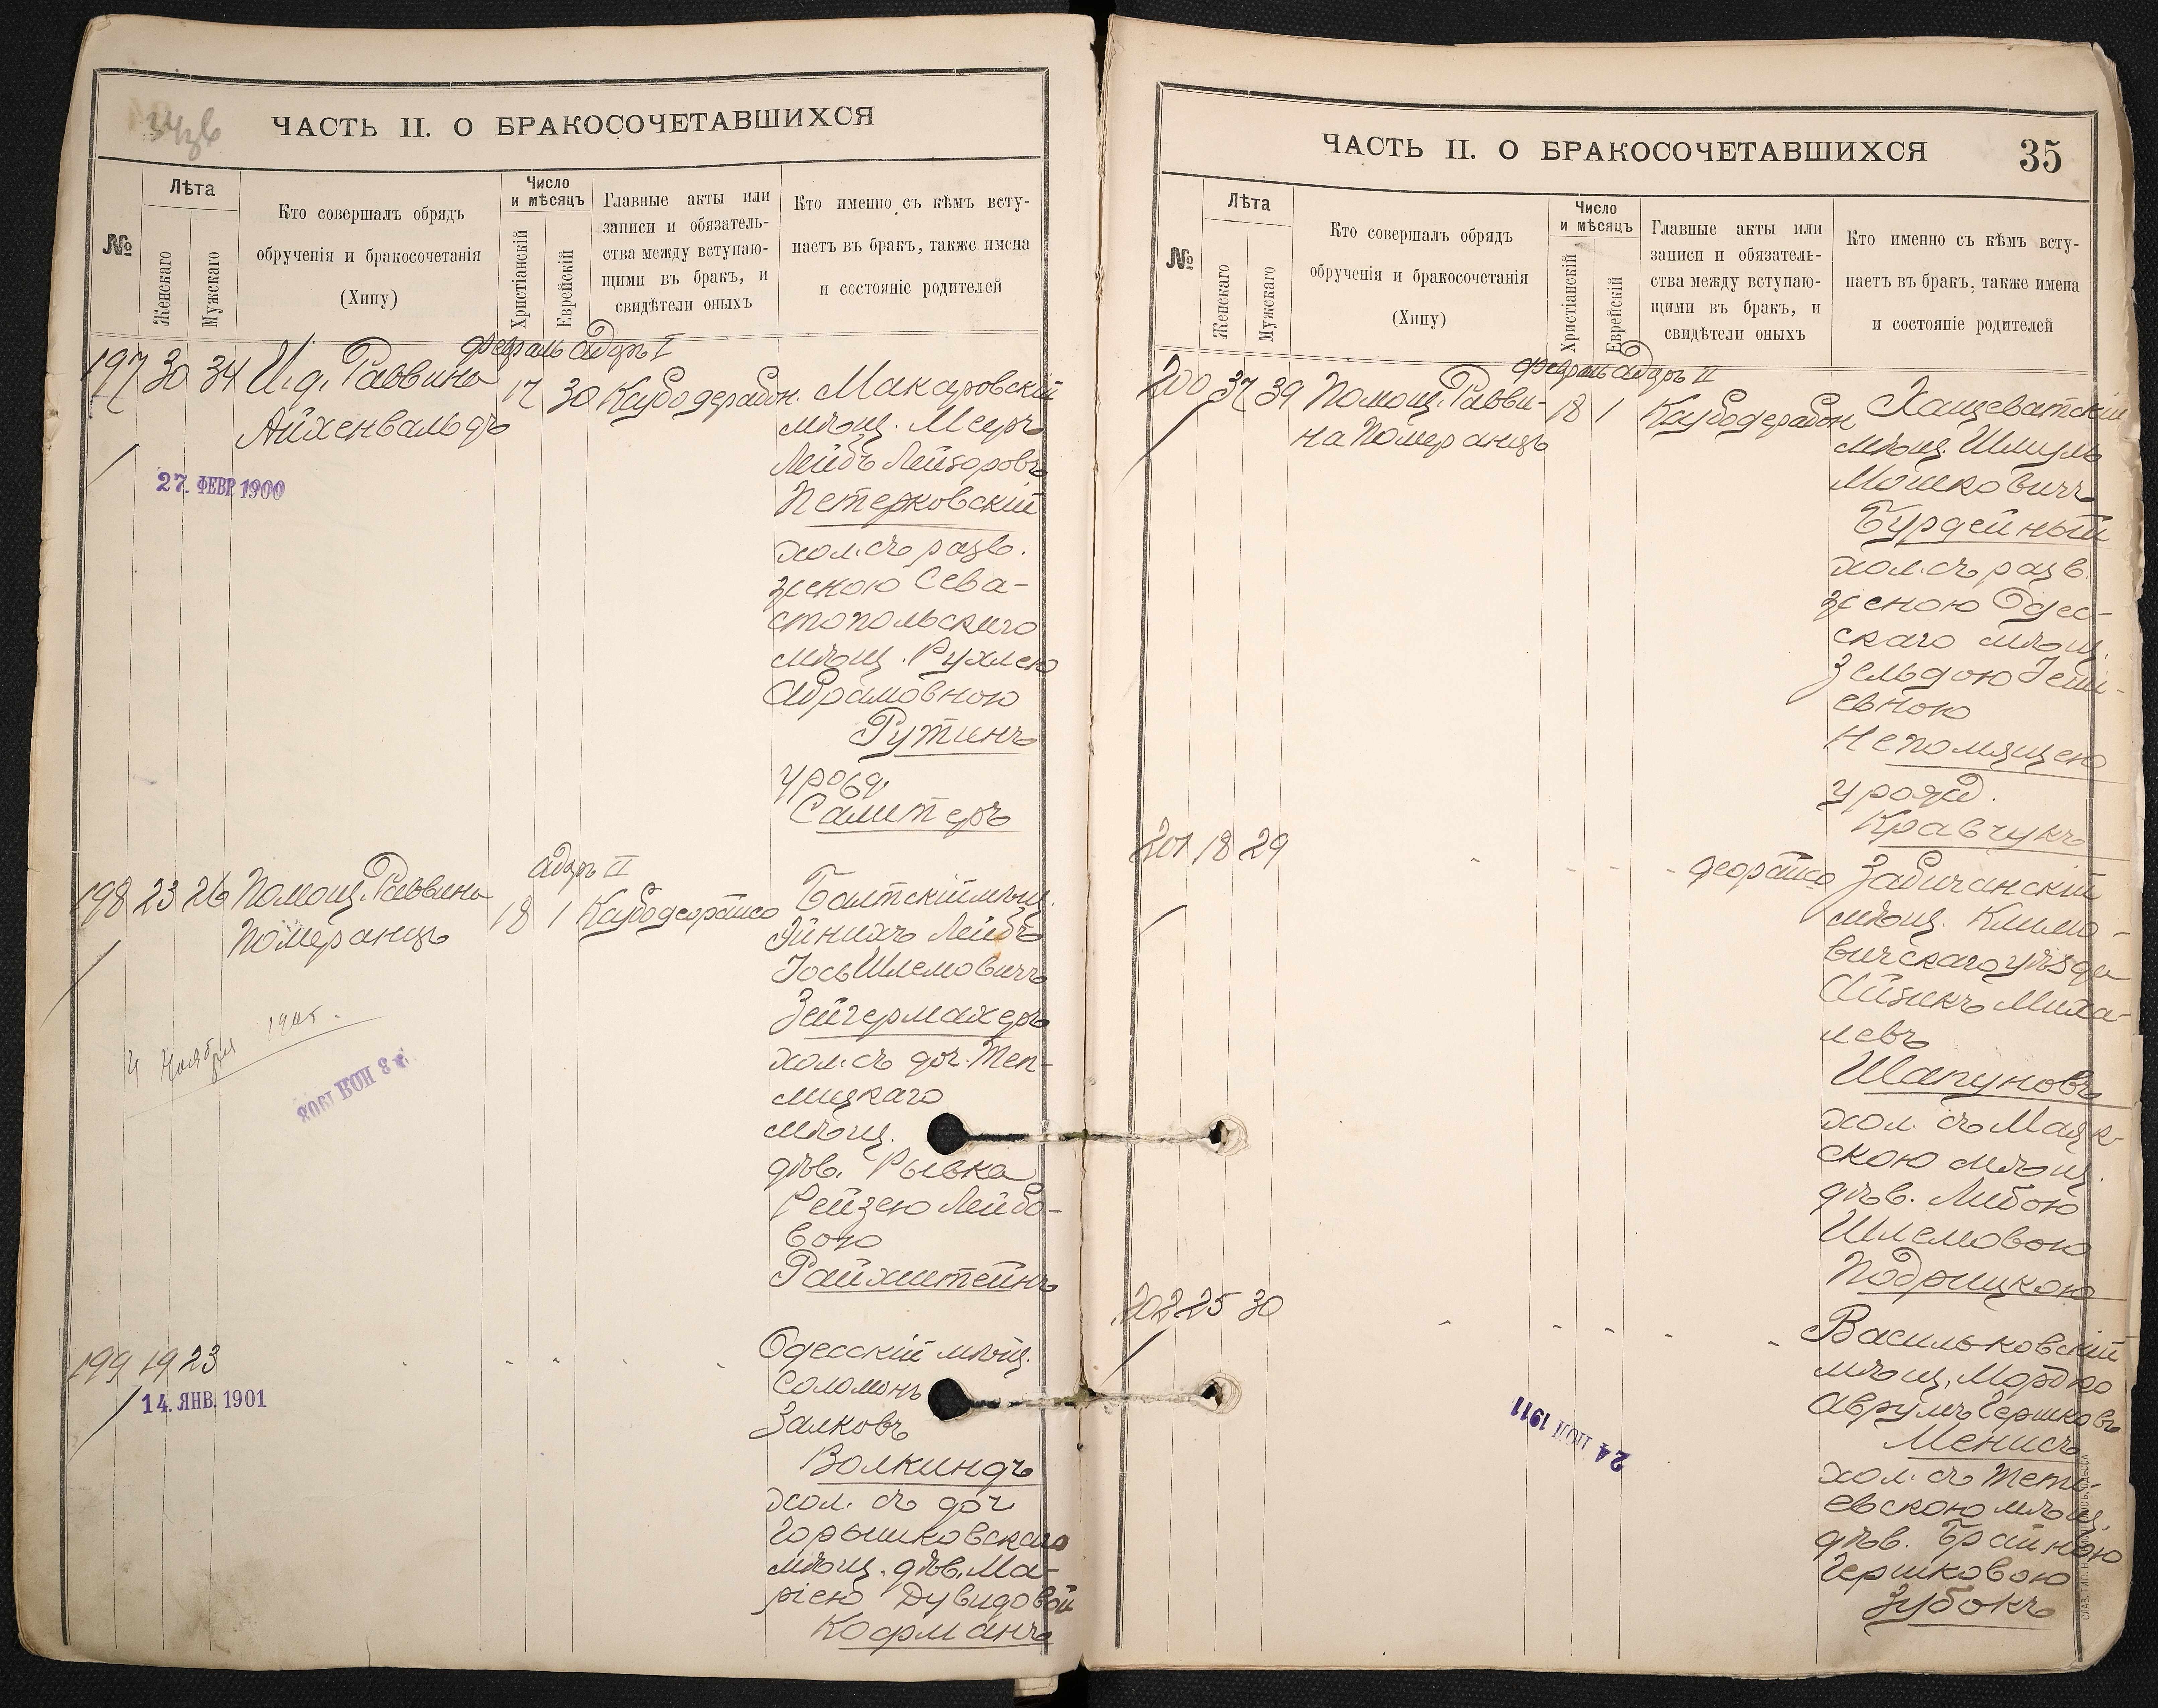 ЧАСТЬ II. О БРАКОСОЧЕТАВШИХСЯ
№
Лѣта
Женскаго
Мужскаго
Кто совершалъ обрядъ
обрученія и бракосочетанія
(Хипу)
Число
и мѣсяцъ
Христіанскій
Еврейскій
Главные акты или
записи и обязатель-
ства между вступаю-
щими въ бракъ, и
свидѣтели оныхъ
Кто именно съ кѣмъ всту-
паетъ въ бракъ, также имена
и состояніе родителей
Февраль Адаръ I
197 30 34 И.д. Раввина 17 30 Макаровскій
Айхенвальдъ мѣщ. Мееръ
Лейбъ Лейзоровъ
27. ФЕВР. 1900
Петерковскій
хол. съ разв.
женою Сева-
стопольскаго
мѣщ. Рухлею
Абрамовною
Рутинъ
урожд.
Самтеръ
Адаръ II
198 23 26 Помощ. Раввина 18 1 Балтскій мѣщ.
Померанцъ Лейбъ
Іось Шлемовичъ
Зейгермахеръ
4 Ноября
8 НОЯ 1908
хол. съ доч. Теп-
лицкаго
мѣщ.
дѣв. Рывка
Рейзею Лейбо-
вою
Райхштейнъ
199 19 23 Одесскій мѣщ.
14. ЯНВ. 1901
Соломонъ
Залковъ
Волкиндъ
хол. съ доч.
Горышковскаго
мѣщ. дѣв. Ма-
ріею Дувидовой
Кофманъ
ЧАСТЬ II. О БРАКОСОЧЕТАВШИХСЯ 35
№
Лѣта
Женскаго
Мужскаго
Кто совершалъ обрядъ
обрученія и бракосочетанія
(Хипу)
Число
и мѣсяцъ
Христіанскій
Еврейскій
Главные акты или
записи и обязатель-
ства между вступаю-
щими въ бракъ, и
свидѣтели оныхъ
Кто именно съ кѣмъ всту-
паетъ въ бракъ, также имена
и состояніе родителей
Февраль Адаръ II
200 37 39 Помощ. Равви- 18 1 Хащеватскій
на Померанцъ мѣщ. Шмуль
Мошковичъ
Бурдейный
хол. съ разв.
женою Одес-
скаго мѣщ.
Зельдою
евною
Непомящею
урожд.
Кравчукъ
201 18 29
мѣщ. Климо-
вичскаго уѣзда
Айзикъ Миха-
левъ
Шапуновъ
хол. съ Маяк-
скою мѣщ.
дѣв. Либою
Шлемовою
Подрицкою
202 25 30 Васильковскій
мѣщ. Мордко
Аврумъ Гершковъ
Менисъ
24 ІЮЛ 1911
хол. съ Тети-
евскою мѣщ.
дѣв. Брайною
Гершковою
Зубокъ